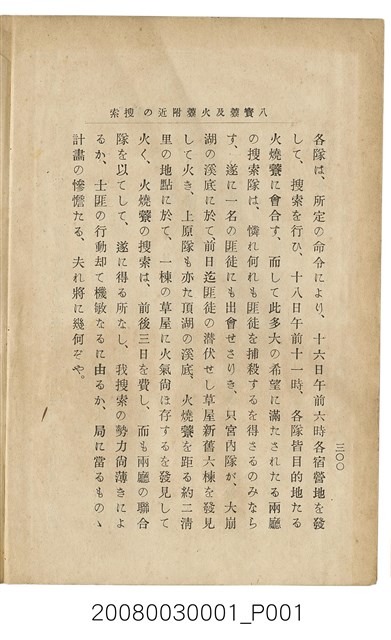 八寶藔及火藔附近の搜索
三〇〇
各隊は、所定の命令により、十六日午前六時各宿營地を發
して、搜索を行ひ、十八日午前十一時、各隊皆目的地たる
火燒藔に會合す、而して此多大の希望に滿たされたる兩廳
の搜索隊は、憐れ何れも匪徒を捕殺するを得さるのみなら
す、遂に一名の匪徒にも出會せさりき、只宮內隊が、大崩
湖の溪底に於て、前日迄匪徒の潜伏せし草屋新舊六棟を發見
して火き、上原隊も亦た頂湖の溪底、火燒藔を距る約二淸
里の地點に於て、一棟の草屋に火氣尙ほ存するを發見して
火く、火燒藔の搜索は、前後三日を費し、而も兩廳の聯合
隊を以てして、遂に得る所なし、我搜索の勢力尙薄きによ
るか、土匪の行動却て機敏なるに由るか、局に當るものゝ
計畫の慘憺たる、夫れ將に幾何ぞや。
20080030001_P001